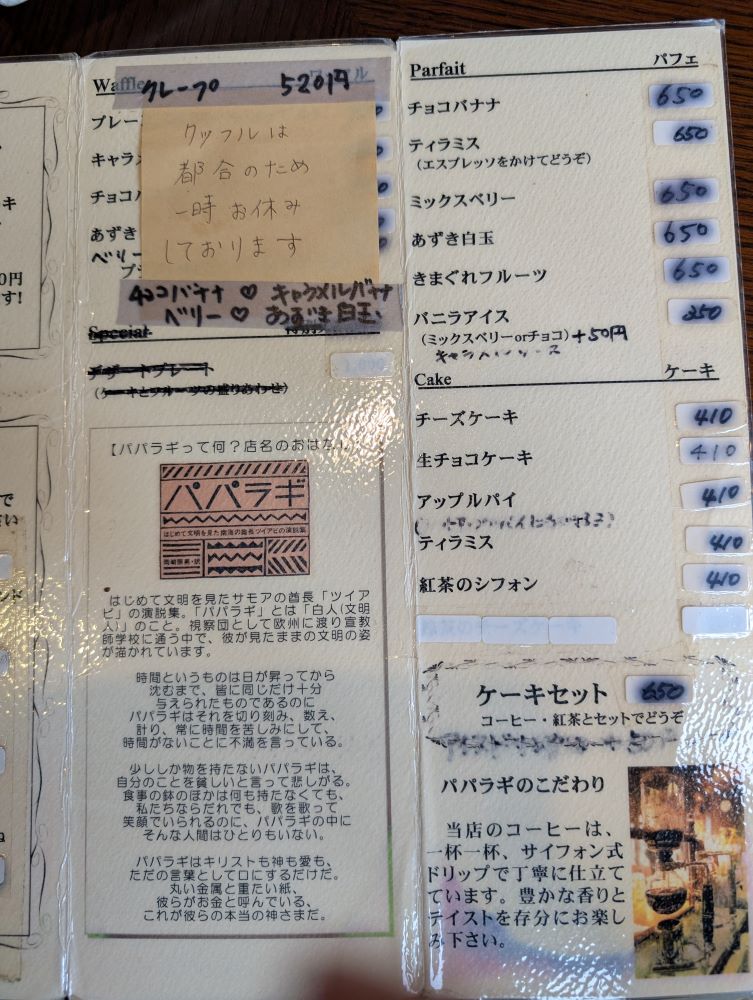 キ
0円
す!
Waffle
クレープ 520円
ル
プレー
キャラ
チョコバ
あずき
ベリー
ワッフルは
都合のため
一時お休み
しております
チョコバナナ ♡ キャラメルバナナ
ベリー ♡ あずき白玉
Special
デザートプレート
(ケーキとフルーツの盛りあわせ)
1,000
【パパラギって何?店名のおはなし
パパラギ
はじめて文明を見た南海の酋長ツイアビの演説集
はじめて文明を見たサモアの酋長「ツイア
ビ」の演説集。「パパラギ」とは「白人(文明
人)」のこと。視察団として欧州に渡り宣教
師学校に通う中で、彼が見たままの文明の姿
が描かれています。
時間というものは日が昇ってから
沈むまで、皆に同じだけ十分
与えられたものであるのに
パパラギはそれを切り刻み、数え、
計り、常に時間を苦しみにして、
時間がないことに不満を言っている。
少ししか物を持たないパパラギは、
自分のことを貧しいと言って悲しがる。
食事の鉢のほかは何も持たなくても、
私たちならだれでも、歌を歌って
笑顔でいられるのに、パパラギの中に
そんな人間はひとりもいない。
パパラギはキリストも神も愛も、
ただの言葉として口にするだけだ。
丸い金属と重たい紙、
彼らがお金と呼んでいる、
これが彼らの本当の神さまだ。
Parfait パフェ
チョコバナナ 650
ティラミス 650
(エスプレッソをかけてどうぞ)
ミックスベリー 650
あずき白玉 650
きまぐれフルーツ 650
バニラアイス 250
(ミックスベリーorチョコ)+50円
Cake ケーキ
チーズケーキ 410
生チョコケーキ 410
アップルパイ 410
ティラミス 410
紅茶のシフォン 410
ケーキセット 650
コーヒー・紅茶とセットでどうぞ
パパラギのこだわり
当店のコーヒーは、
一杯一杯、サイフォン式
ドリップで丁寧に仕立て
ています。豊かな香りと
テイストを存分にお楽し
み下さい。